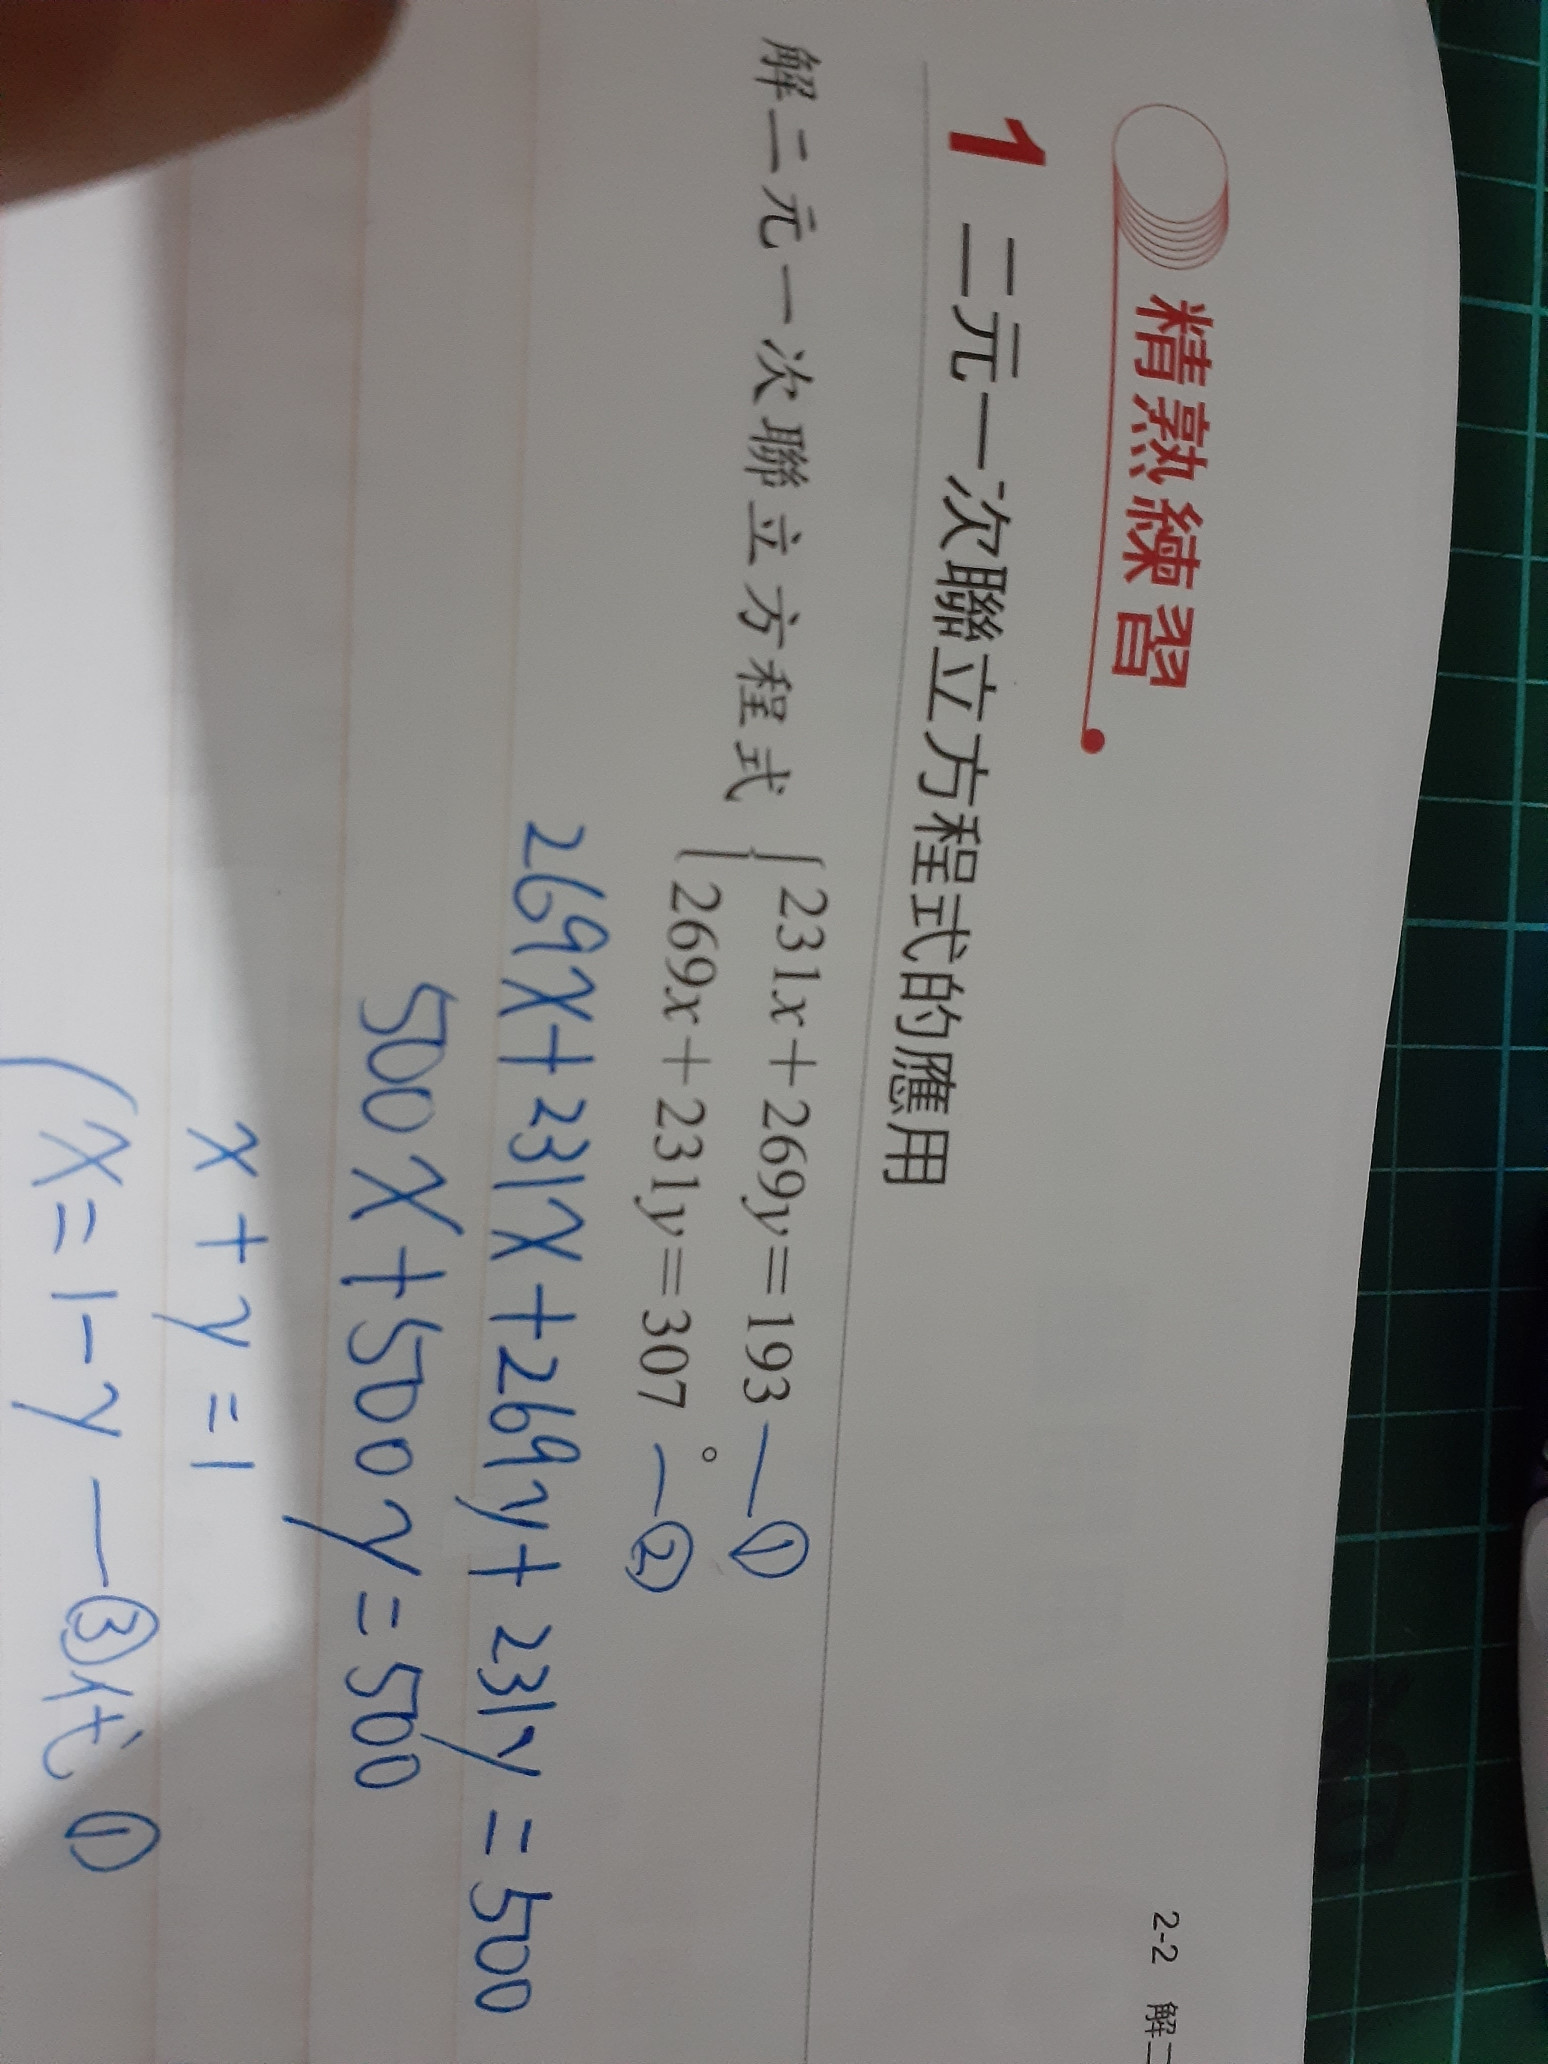 2-2 解二
精熟練習
1 二元一次聯立方程式的應用
解二元一次聯立方程式 { 231x+269y=193 —①
269x+231y=307。—②
269x+231x+269y+231y=500
500x+500y=500
x+y=1
(x=1-y —③代①